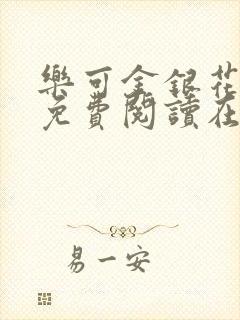 樂可金銀花
免費閱讀在
易一安